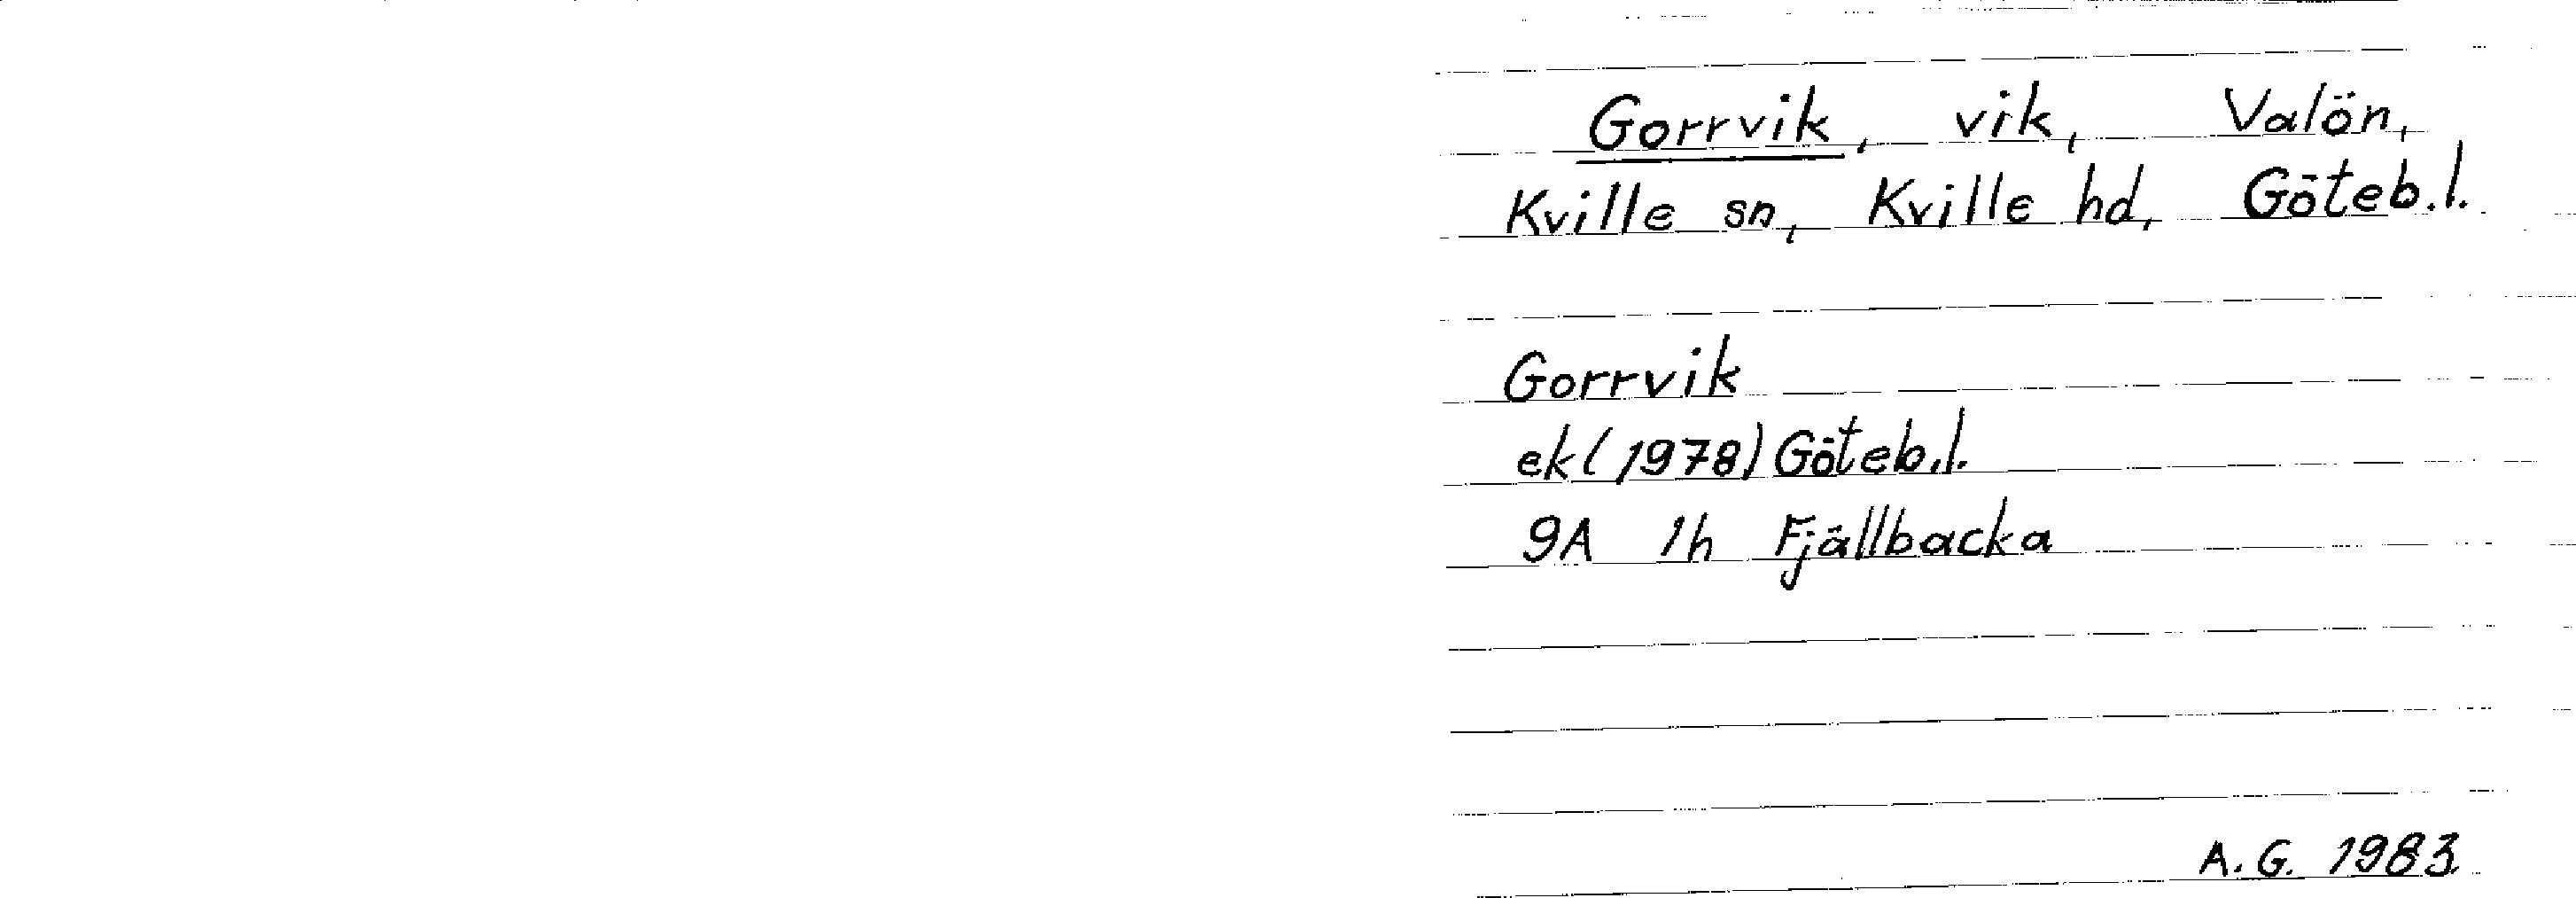 Gorrvik, vik, Valön,
Kville sn, Kville hd, Göteb.l.
Gorrvik
ek(1978) Göteb.l.
9A 1h Fjällbacka
A.G. 1983.